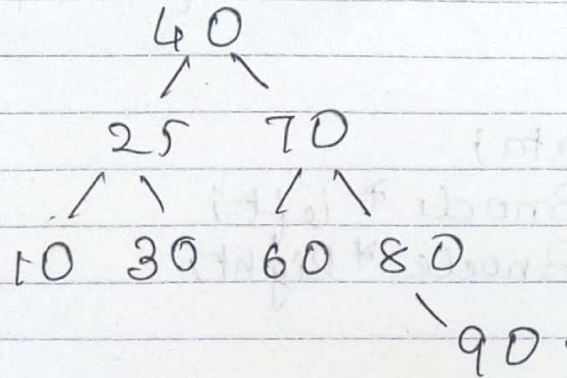 40
25 70
10 30 60 80
90